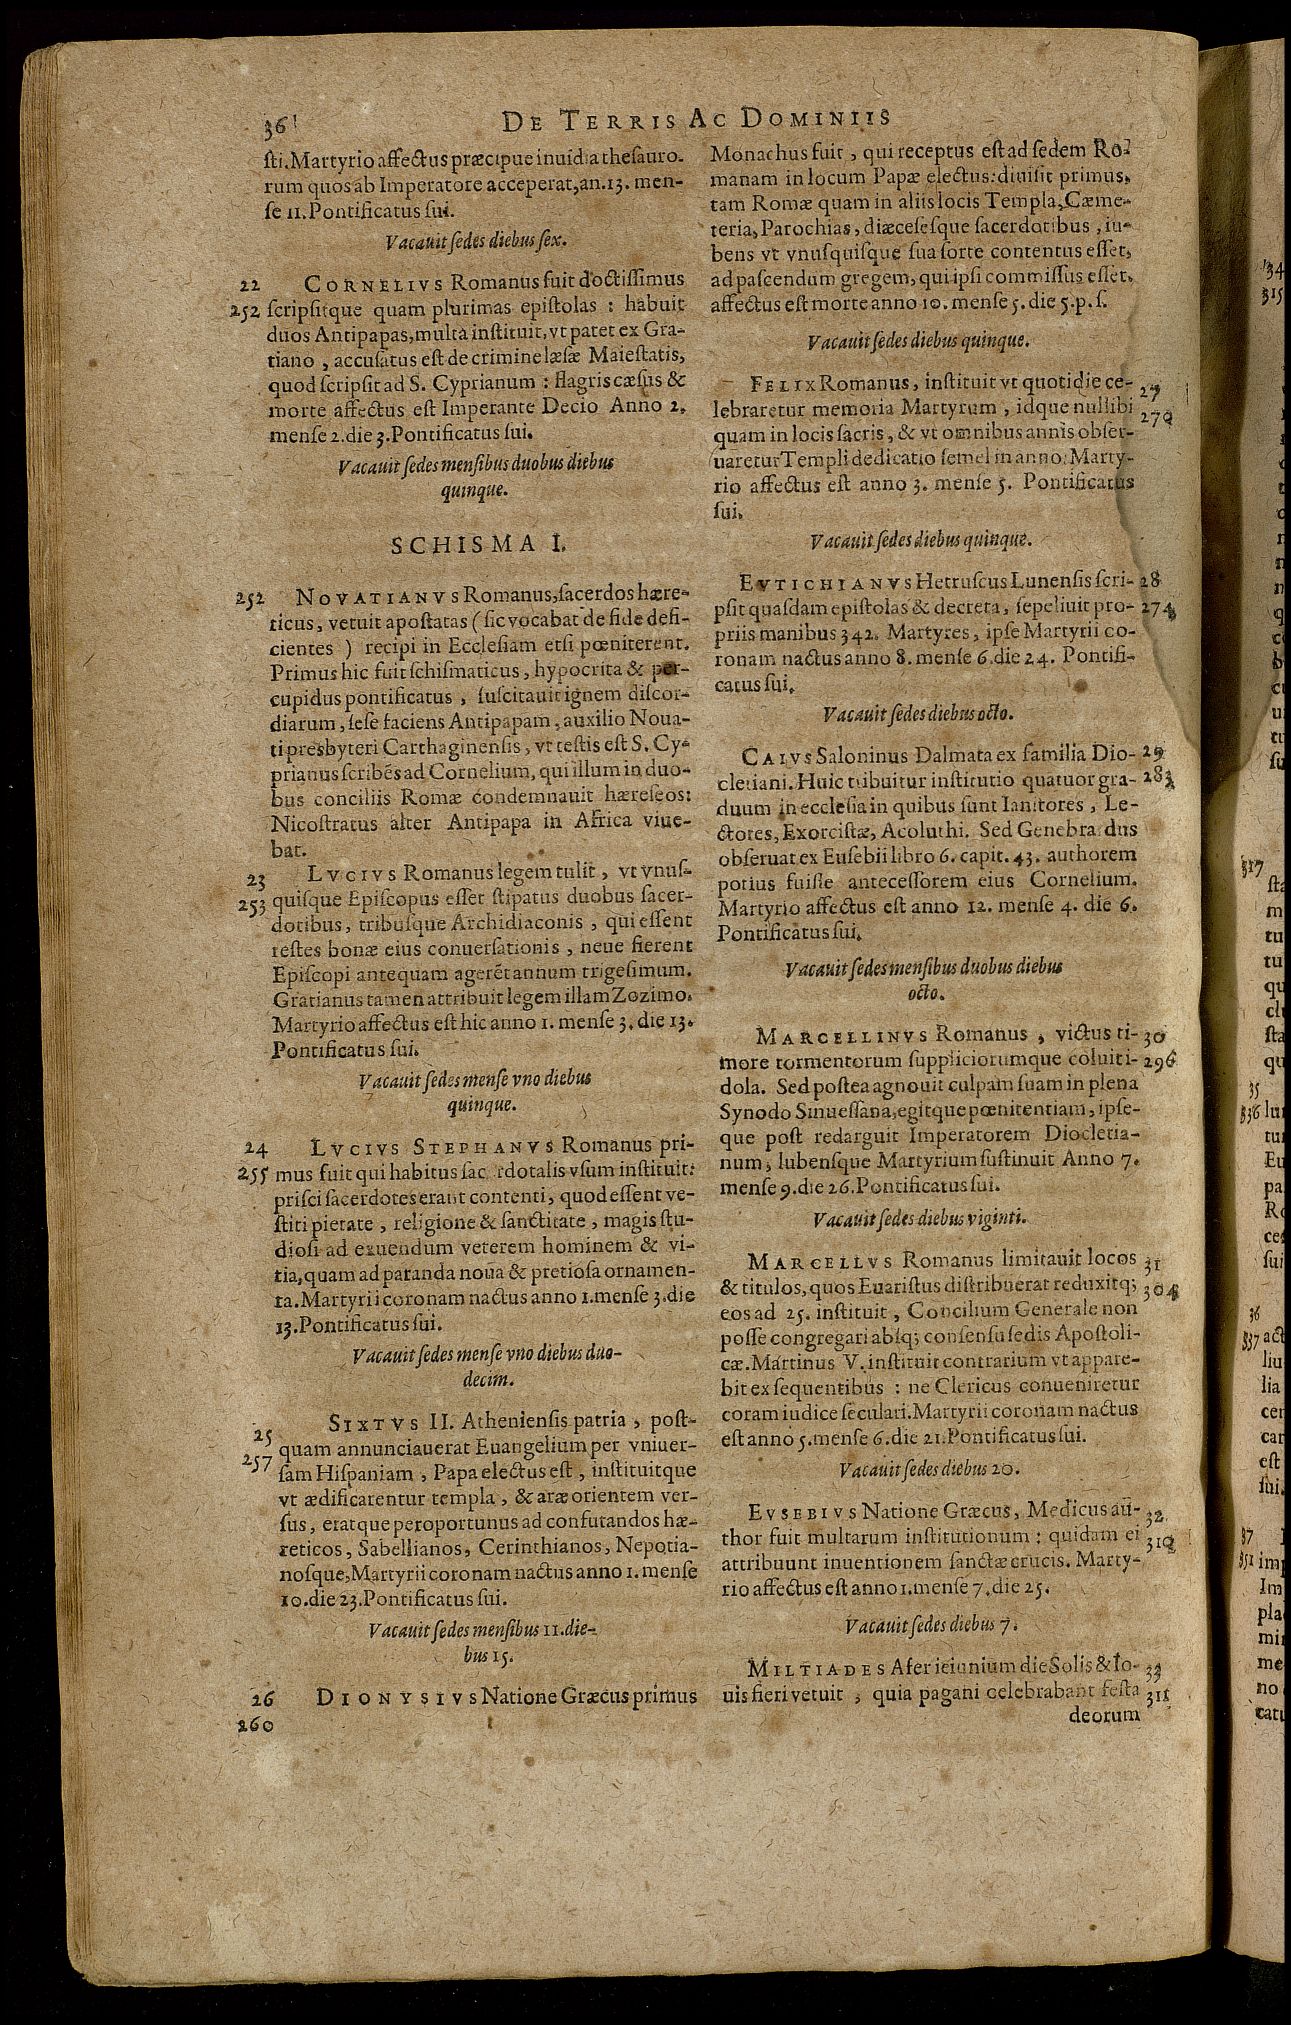 36
DE TERRIS AC DOMINIIS
sti. Martyrio affectus præcipue inuidia thesauro-
rum quos ab Imperatore acceperat, an. 13. men-
se 11. Pontificatus sui.
Vacauit sedes diebus sex.
22
CORNELIVS Romanus fuit doctissimus
252 scripsitque quam plurimas epistolas : habuit
duos Antipapas, multa instituit, vt patet ex Gra-
tiano , accusatus est de crimine læsæ Maiestatis,
quod scripsit ad S. Cyprianum : flagris cæsus &
morte affectus est Imperante Decio Anno 2.
mense 2. die 3. Pontificatus sui.
Vacauit sedes mensibus duobus diebus
quinque.
SCHISMA I.
252 NOVATIANVS Romanus, sacerdos hære-
ticus, vetuit apostatas ( sic vocabat de fide defi-
cientes ) recipi in Ecclesiam etsi pœniterent.
Primus hic fuit schismaticus, hypocrita & per-
cupidus pontificatus , suscitauit ignem discor-
diarum, sese faciens Antipapam, auxilio Noua-
ti presbyteri Carthaginensis, vt testis est S. Cy-
prianus scribẽs ad Cornelium, qui illum in duo-
bus conciliis Romæ condemnauit hæreseos:
Nicostratus alter Antipapa in Africa viue-
bat.
23 LVCIVS Romanus legem tulit, vt vnus-
253 quisque Episcopus esset stipatus duobus sacer-
dotibus, tribusque Archidiaconis , qui essent
testes bonæ eius conuersationis , neue fierent
Episcopi antequam agerẽt annum trigesimum.
Gratianus tamen attribuit legem illam Zozimo.
Martyrio affectus est hic anno 1. mense 3. die 13.
Pontificatus sui.
Vacauit sedes mense vno diebus
quinque.
24 LVCIVS STEPHANVS Romanus pri-
255 mus fuit qui habitus sac rdotalis vsum instituit:
prisci sacerdotes erant contenti, quod essent ve-
stiti pietate , religione & sanctitate , magis stu-
diosi ad exuendum veterem hominem & vi-
tia, quam ad paranda noua & pretiosa ornamen-
ta. Martyrii coronam nactus anno 1. mense 3. die
13. Pontificatus sui.
Vacauit sedes mense vno diebus duo-
decim.
25 SIXTVS II. Atheniensis patria , post-
257 quam annunciauerat Euangelium per vniuer-
sam Hispaniam , Papa electus est , instituitque
vt ædificarentur templa , & aræ orientem ver-
sus , eratque peroportunus ad confutandos hæ-
reticos, Sabellianos, Cerinthianos, Nepotia-
nosque, Martyrii coronam nactus anno 1. mense
10. die 23. Pontificatus sui.
Vacauit sedes mensibus 11. die-
bus 15.
26 DIONYSIVS Natione Græcus primus
260
Monachus fuit , qui receptus est ad sedem Ro-
manam in locum Papæ electus: diuisit primus,
tam Romæ quam in aliis locis Templa, Cæme-
teria, Parochias, diæcesesque sacerdotibus , iu-
bens vt vnusquisque sua sorte contentus esset,
ad pascendum gregem, qui ipsi commissus esset.
affectus est morte anno 10. mense 5. die 5. p. s.
Vacauit sedes diebus quinque.
FELIX Romanus, instituit vt quotidie ce- 27
lebraretur memoria Martyrum , idque nullibi 270
quam in locis sacris, & vt omnibus annis obser-
uaretur Templi dedicatio semel in anno: Marty-
rio affectus est anno 3. mense 5. Pontificatus
sui.
Vacauit sedes diebus quinque.
EVTICHIANVS Hetruscus Lunensis scri- 28
psit quasdam epistolas & decreta, sepeliuit pro- 274
priis manibus 342. Martyres, ipse Martyrii co-
ronam nactus anno 8. mense 6. die 24. Pontifi-
catus sui.
Vacauit sedes diebus octo.
CAIVS Saloninus Dalmata ex familia Dio- 29
cletiani. Huic tribuitur institutio quatuor gra- 283
duum in ecclesia in quibus sunt Ianitores , Le-
ctores, Exorcistæ, Acoluthi. Sed Genebrardus
obseruat ex Eusebii libro 6. capit. 43. authorem
potius fuisse antecessorem eius Cornelium.
Martyrio affectus est anno 12. mense 4. die 6.
Pontificatus sui.
Vacauit sedes mensibus duobus diebus
octo.
MARCELLINVS Romanus , victus ti- 30
more tormentorum suppliciorumque coluit i- 296
dola. Sed postea agnouit culpam suam in plena
Synodo Sinuessana, egitque pœnitentiam, ipse-
que post redarguit Imperatorem Diocletia-
num, lubensque Martyrium sustinuit Anno 7.
mense 9. die 26. Pontificatus sui.
Vacauit sedes diebus viginti.
MARCELLVS Romanus limitauit locos 31
& titulos, quos Euaristus distribuerat reduxitq; 304
eos ad 25. instituit , Concilium Generale non
posse congregari absq; consensu sedis Apostoli-
cæ. Martinus V. instituit contrarium vt appare-
bit ex sequentibus : ne Clericus conueniretur
coram iudice seculari. Martyrii coronam nactus
est anno 5. mense 6. die 21. Pontificatus sui.
Vacauit sedes diebus 20.
EVSEBIVS Natione Græcus, Medicus au- 32
thor fuit multarum institutionum : quidam ei 310
attribuunt inuentionem sanctæ crucis. Marty-
rio affectus est anno 1. mense 7. die 25.
Vacauit sedes diebus 7.
MILTIADES Afer ieiunium die Solis & Io- 33
uis fieri vetuit , quia pagani celebrabant festa 311
deorum